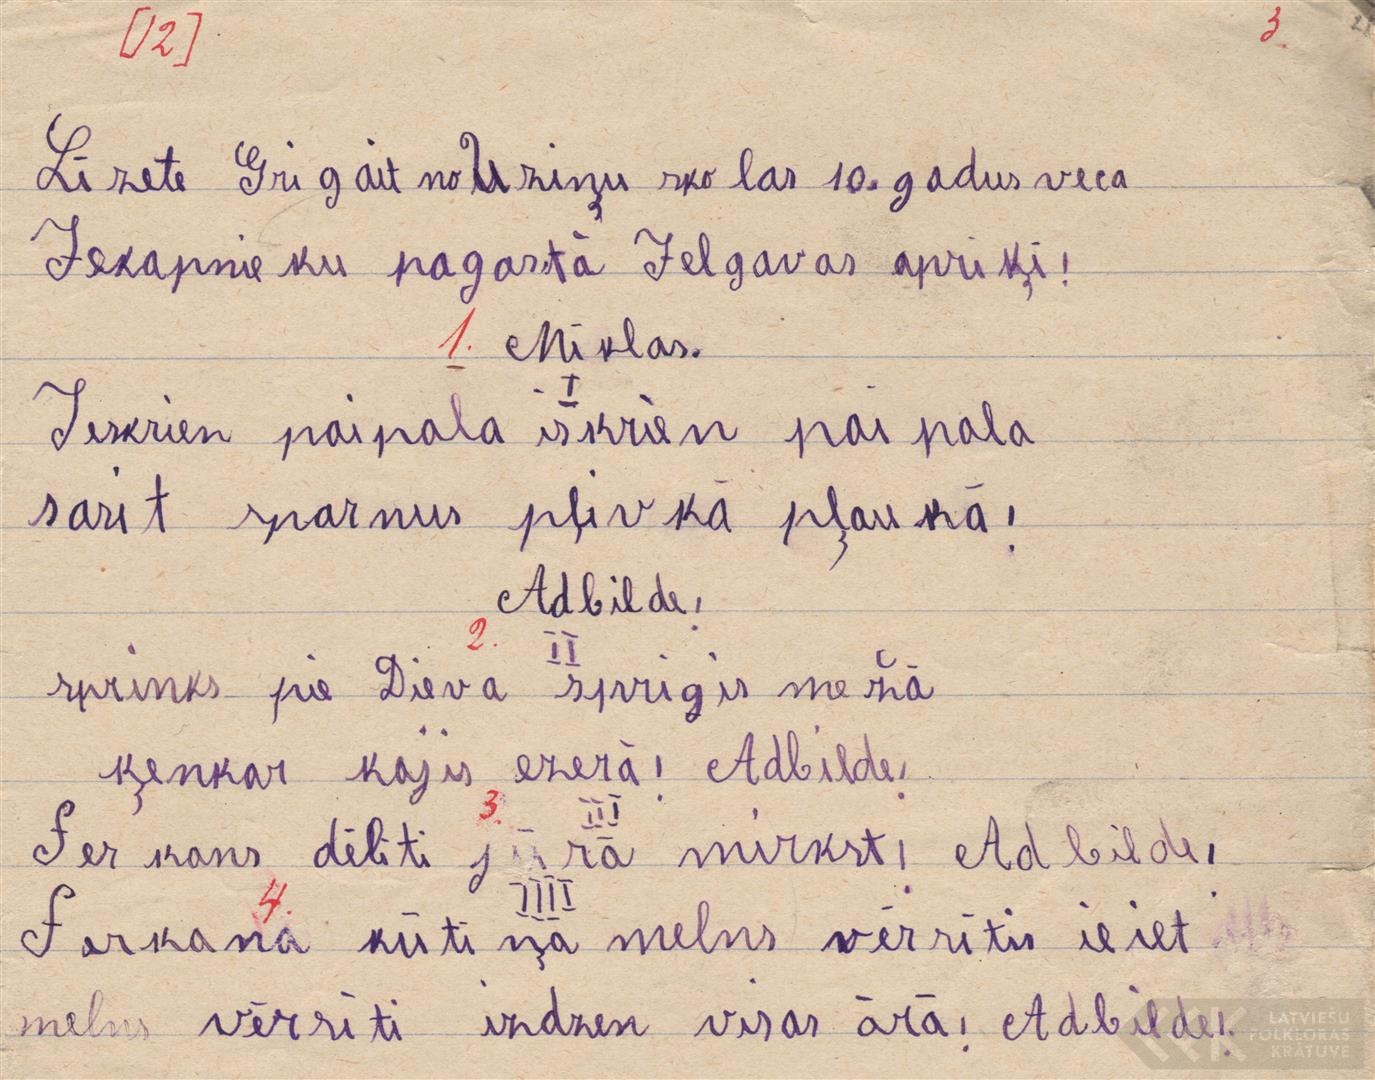 [12] 3.
Līzete Grigait no Uziņu skolas 10. gadus veca
Jekapnieku pagastā Jelgavas apriķī!
1. Mīklas.
I
Ieskrien paipala iskrien paipala
sarit sparnus pļivkā pļaukā!
Adbilde!
2. II
sprinks pie Dieva sprigis mežā
ķenkar kājis ezerā! Adbilde!
3. III
Serkans dēliti jūrā mirkst! Adbilde!
4. IIII
Sarkana kūtiņa melns vērsītis ieiet
melns vērsīti izdzen visas ārā! Adbilde!
LATVIEŠU
FOLKLORAS
KRĀTUVE